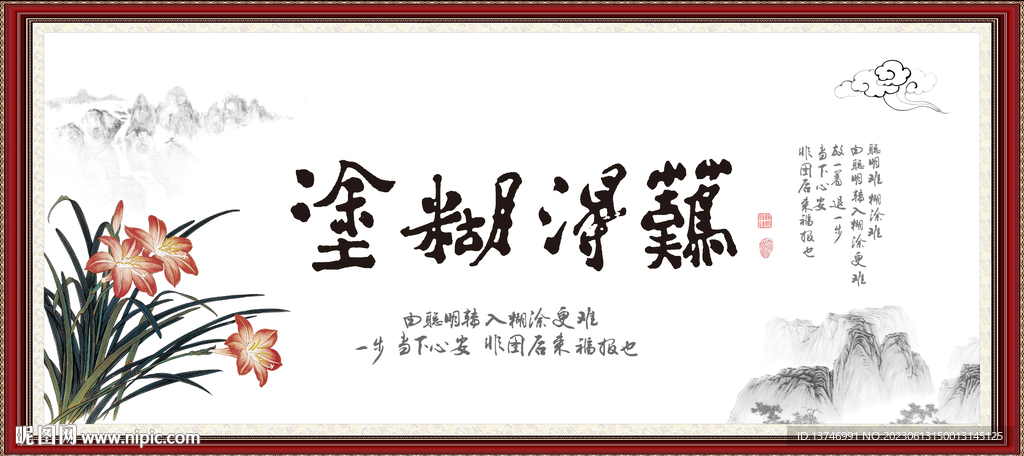 難得糊塗
由聪明转入糊涂更难
一步 当下心安 非图后来福报也
聪明难 糊涂难
由聪明转入糊涂更难
放一著 退一步
当下心安
非图后来福报也
昵图网 www.nipic.com
ID:13746991 NO.20230613150013145125